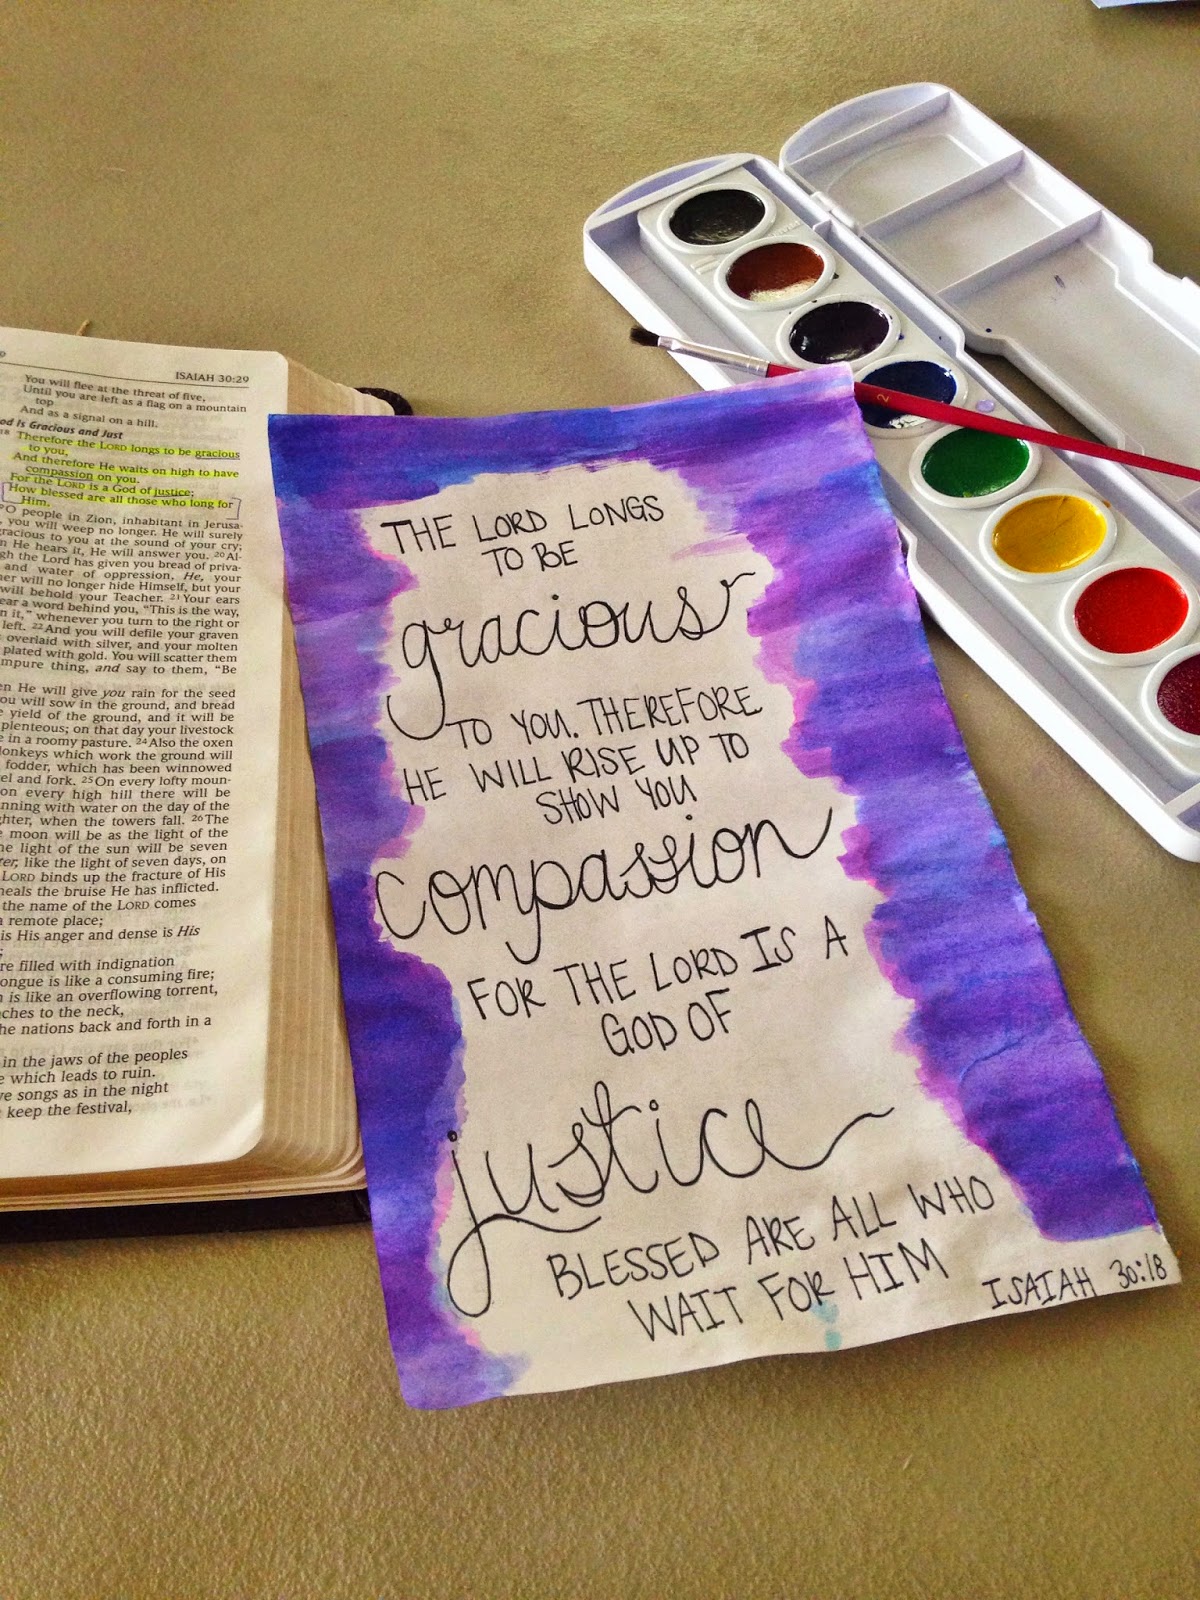 ISAIAH 30:29
You will flee at the threat of five,
Until you are left as a flag on a mountain
top
And as a signal on a hill.
is Gracious and Just
18 Therefore the LORD longs to be gracious
to you,
And therefore He waits on high to have
compassion on you.
For the LORD is a God of justice;
How blessed are all those who long for
Him.
O people in Zion, inhabitant in Jerusa-
you will weep no longer. He will surely
gracious to you at the sound of your cry;
He hears it, He will answer you. 20 Al-
the Lord has given you bread of priva-
and water of oppression, He, your
will no longer hide Himself, but your
will behold your Teacher. 21 Your ears
a word behind you, "This is the way,
in it," whenever you turn to the right or
left. 22 And you will defile your graven
overlaid with silver, and your molten
plated with gold. You will scatter them
impure thing, and say to them, "Be
He will give you rain for the seed
you will sow in the ground, and bread
yield of the ground, and it will be
plenteous; on that day your livestock
in a roomy pasture. 24 Also the oxen
donkeys which work the ground will
fodder, which has been winnowed
and fork. 25 On every lofty moun-
on every high hill there will be
running with water on the day of the
when the towers fall. 26 The
moon will be as the light of the
the light of the sun will be seven
like the light of seven days, on
LORD binds up the fracture of His
heals the bruise He has inflicted.
the name of the LORD comes
a remote place;
is His anger and dense is His
filled with indignation
tongue is like a consuming fire;
is like an overflowing torrent,
reaches to the neck,
the nations back and forth in a
in the jaws of the peoples
which leads to ruin.
songs as in the night
keep the festival,
THE LORD LONGS
TO BE
gracious
TO YOU. THEREFORE
HE WILL RISE UP TO
SHOW YOU
compassion
FOR THE LORD IS A
GOD OF
justice
BLESSED ARE ALL WHO
WAIT FOR HIM
ISAIAH 30:18
2